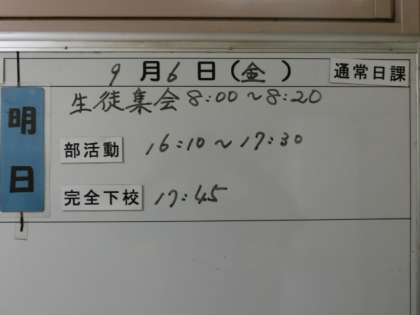 9月6日(金) 通常日課
明日
生徒集会 8:00~8:20
部活動 16:10~17:30
完全下校 17:45